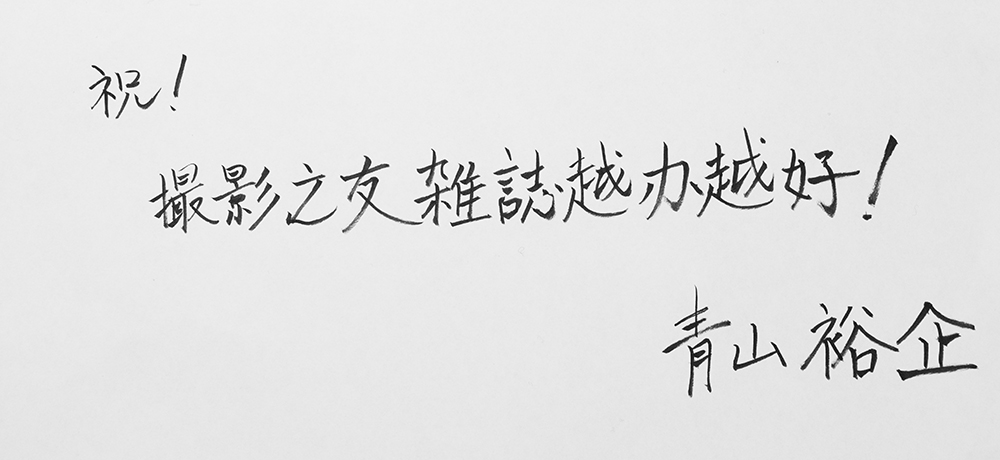 祝！
撮影之友雑誌越办越好！
青山裕企